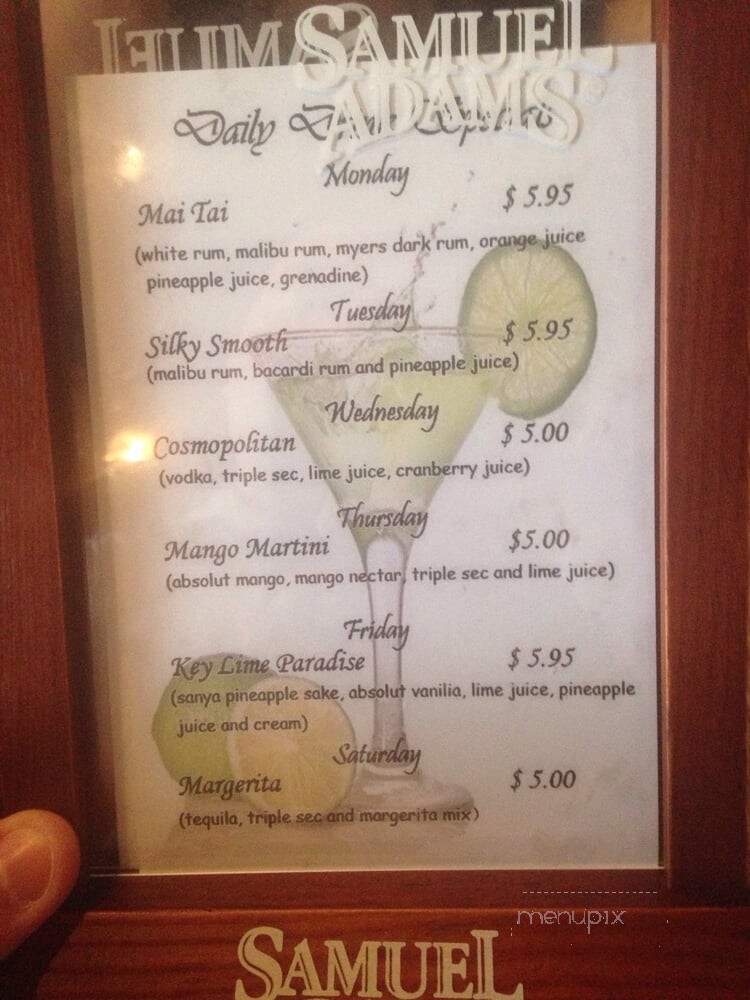 SAMUEL
ADAMS
Daily Drink Specials
Monday
Mai Tai $ 5.95
(white rum, malibu rum, myers dark rum, orange juice
pineapple juice, grenadine)
Tuesday
Silky Smooth $ 5.95
(malibu rum, bacardi rum and pineapple juice)
Wednesday
Cosmopolitan $ 5.00
(vodka, triple sec, lime juice, cranberry juice)
Thursday
Mango Martini $5.00
(absolut mango, mango nectar, triple sec and lime juice)
Friday
Key Lime Paradise $ 5.95
(sanya pineapple sake, absolut vanilia, lime juice, pineapple
juice and cream)
Saturday
Margerita $ 5.00
(tequila, triple sec and margerita mix)
menupix
SAMUEL